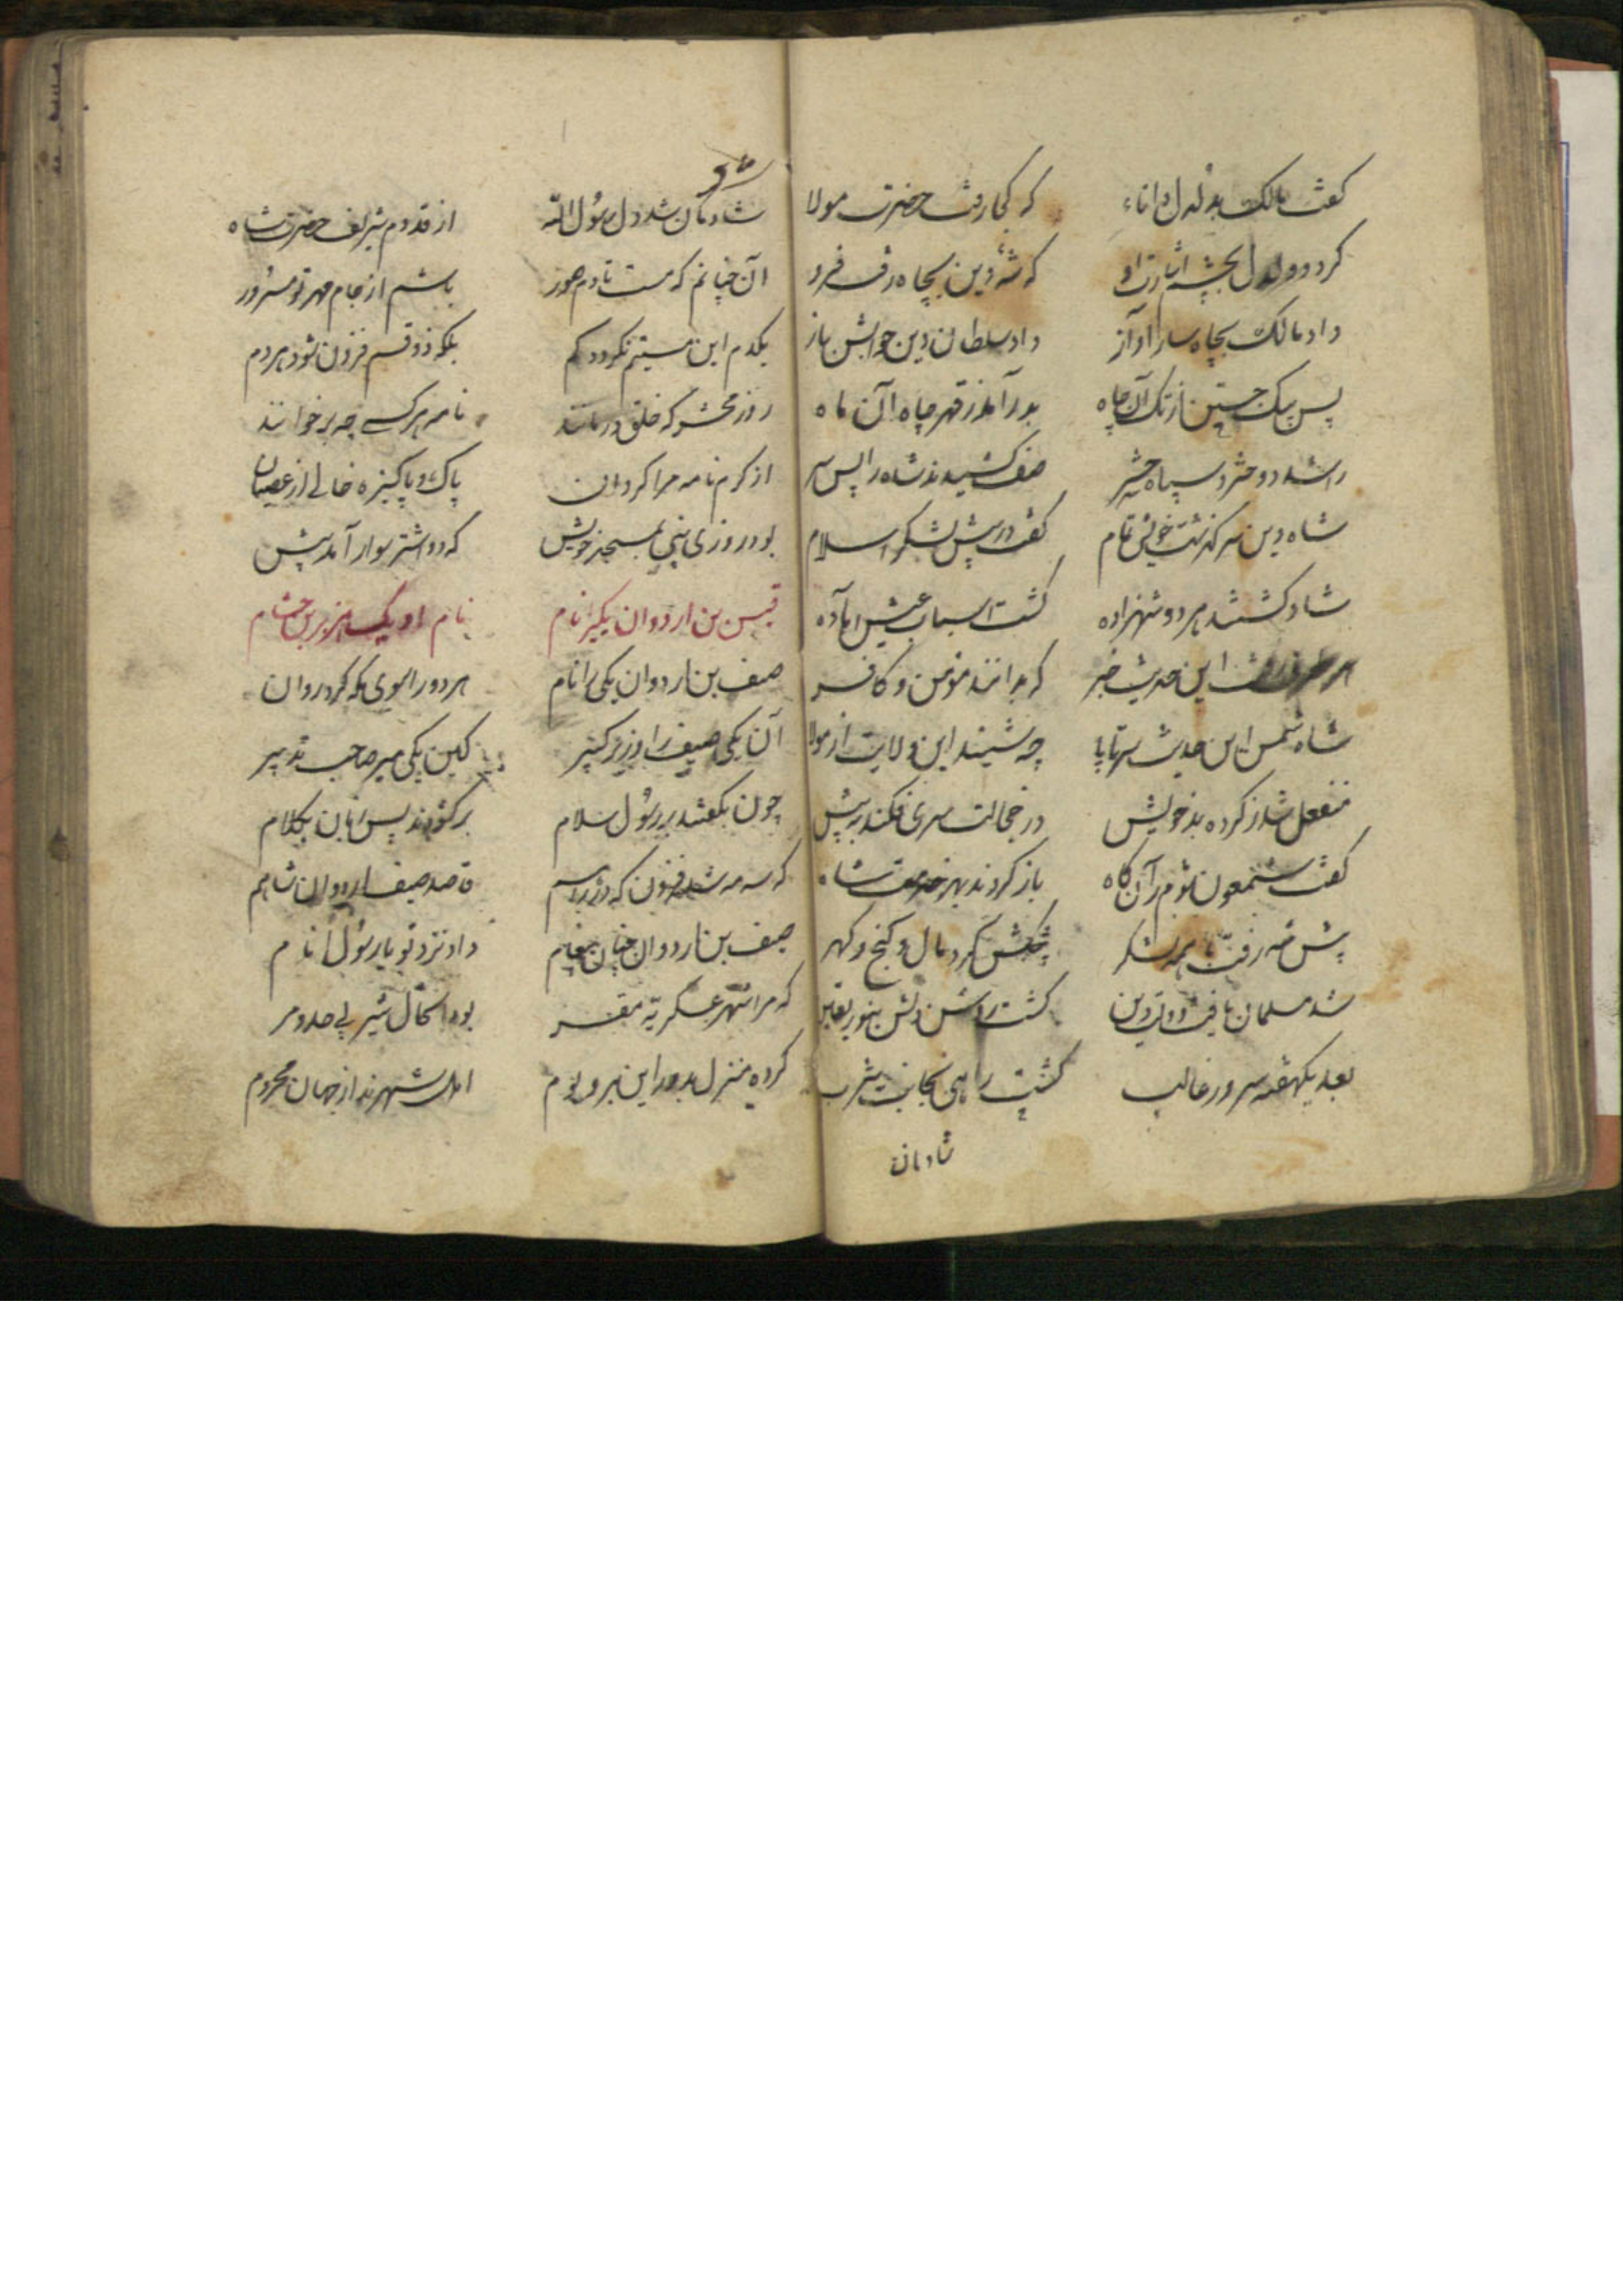 گفت مالک بدلدل دانا که کجا رفت حضرت مولا
کرد دلدل بچشم اشارت او که شه دین بچاه رفت فرو
داد مالک بچاه سار آواز داد سلطان دین جوابش باز
پس بیک جستن از تک آن چاه بدر آمد ز قعر چاه آن ماه
راشد و سپاه صف کشیدند شاه را پس سر
شاه دین سر گذشت خویش تمام گفت در پیش لشکر اسلام
شاد گشتند هر دو شهزاده گشت اسباب عیش آماده
این حدیث خبر که بدانند مؤمن و کافر
شاه شمس این حدیث سر تا پا چه شنید این ولایت از مولا
منفعل شد ز کرده بد خویش در خجالت سری فکند به پیش
گفت شمعون شوم آن گاه باز کردند بهر خدمت شاه
پیش شه رفت با همه لشکر پیشکش کرد مال و گنج و گهر
شد مسلمان یافت دولت دین گشت روشن دلش بنور یقین
بعد یکهفته سرور غالب گشت راهی بجانب یثرب
شادمان
شادمان شد دل رسول الله از قدوم شریف حضرت شاه
آن چنانم که مست تا دم صور باشم از جام مهر تو مسرور
یکدم این مستیم نگردد کم بلکه ذوقم فزون شود هر دم
روز محشر که خلق درمانند نامه هر کسی چه بر خوانند
از کرم نامه مرا گردان پاک و پاکیزه خالی از عصیان
بود روزی نبی بمسجد خویش که دو اشتر سوار آمد پیش
قیس بن اردوان یکی نام نام او یک هزبر بن حشام
صیف بن اردوان یکی را نام هر دو را سوی مکه کرد روان
آن یکی صیف را وزیر کبیر کین یکی میر صاحب تدبیر
چون بگفتند بر رسول سلام بر گشودند پس زبان بکلام
که سه مه شد فزون که در راهیم قاصد صیف اردوان شاهیم
صیف بن اردوان چنان پیغام داد نزد تو یا رسول انام
که مرا شهر عسکریه مقر بود اکنون شیر بی حد و مر
کرده منزل بدور این بر و بوم اهل شهرند از جهان محروم